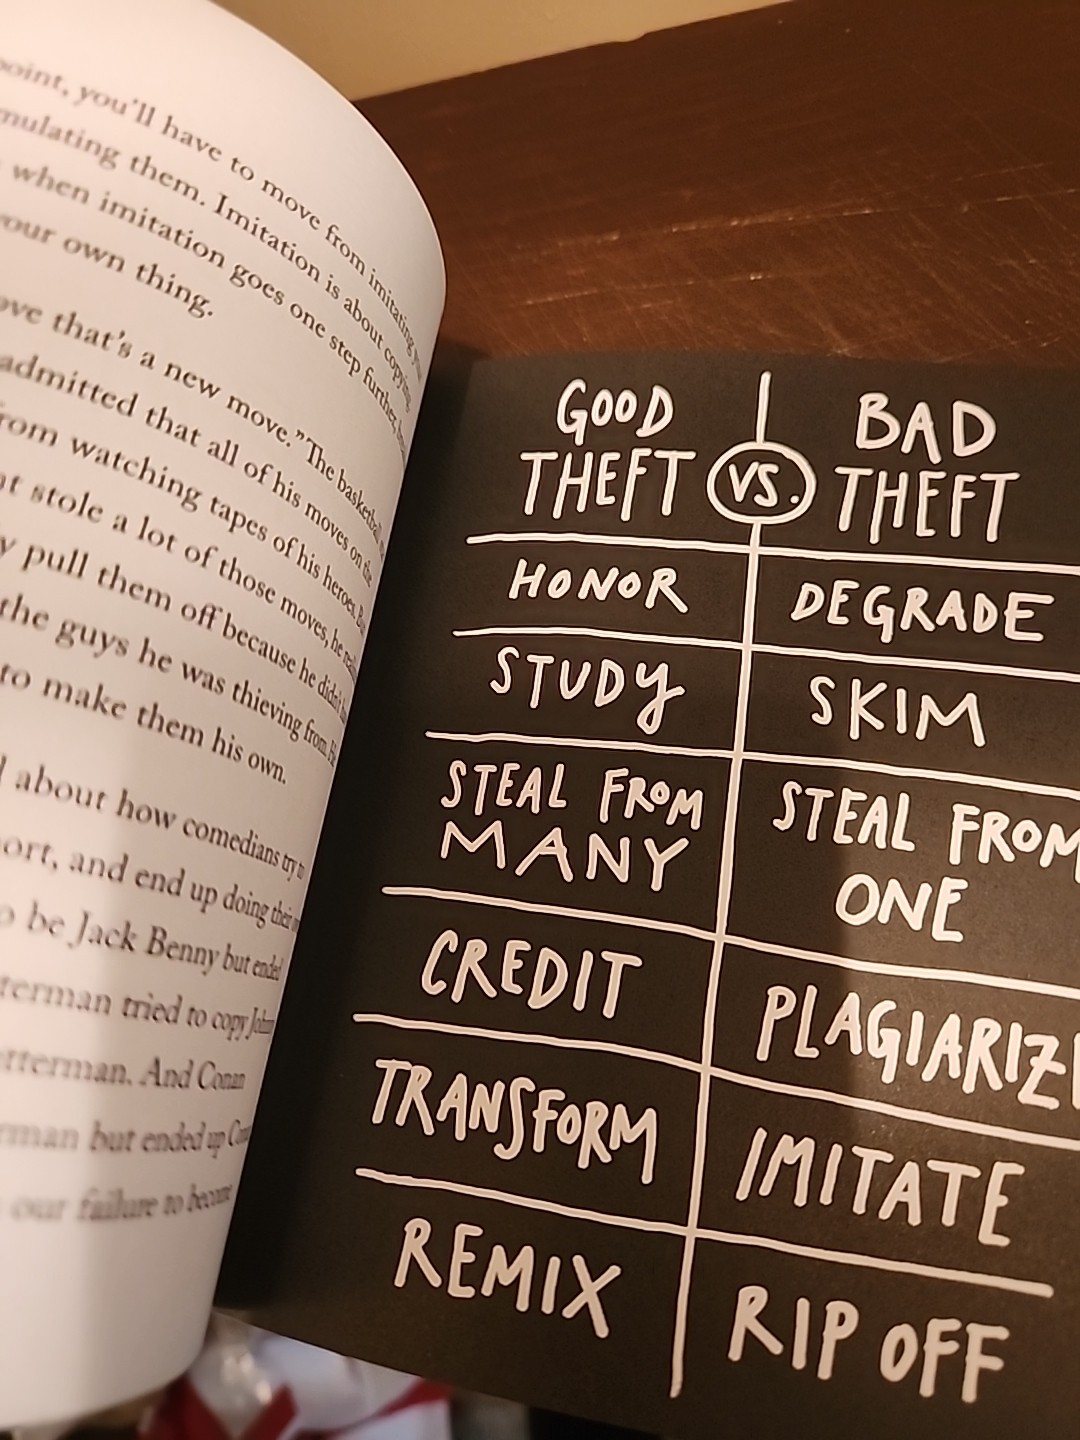 point, you'll have to move from imitating
mulating them. Imitation is about copying.
when imitation goes one step further,
your own thing.
ove that's a new move." The basketball
admitted that all of his moves on the
from watching tapes of his heroes.
nt stole a lot of those moves, he
y pull them off because he didn't
the guys he was thieving from. He
to make them his own.
about how comedians try to
ort, and end up doing their
o be Jack Benny but ended
tterman tried to copy
etterman. And Conan
rman but ended up
our failure to become
GOOD
THEFT
VS.
BAD
THEFT
HONOR
DEGRADE
STUDY
SKIM
STEAL FROM
MANY
STEAL FROM
ONE
CREDIT
PLAGIARIZE
TRANSFORM
IMITATE
REMIX
RIP OFF